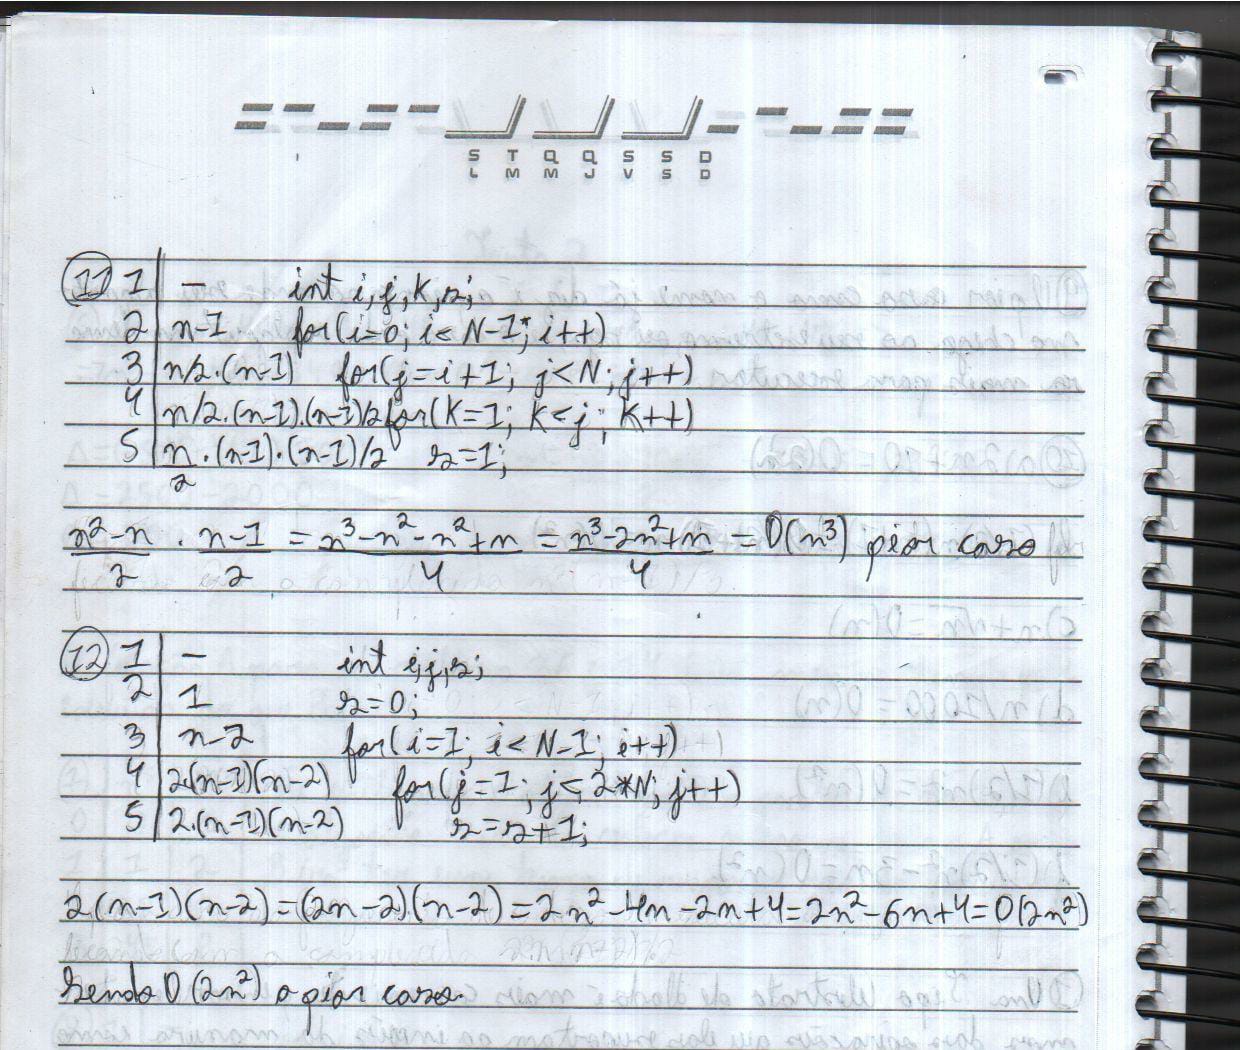 S T Q Q S S D
L M M J V S D
11 1 - int i,j,k,s;
2 n-1 for(i=0; i<N-1; i++)
3 n/2.(n-1) for(j=i+1; j<N; j++)
4 n/2.(n-1).(n-1)/2 for(K=1; K<j; K++)
5 n/2.(n-1).(n-1)/2 s=1;
n²-n/2 . n-1/2 = n³-n²-n²+n/4 = n³-2n²+n/4 = O(n³) pior caso
12 1 - int i,j,s;
2 1 s=0;
3 n-2 for(i=1; i<N-1; i++)
4 2.(n-1)(n-2) for(j=1; j<2*N; j++)
5 2.(n-1)(n-2) s=s+1;
2.(n-1)(n-2)=(2n-2).(n-2)=2n²-4n-2n+4=2n²-6n+4=O(2n²)
Sendo O(2n²) o pior caso.